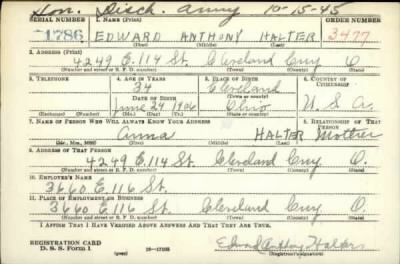 Hon. Disch. Army 10-15-45
SERIAL NUMBER 1. NAME (Print) ORDER NUMBER
1786 EDWARD ANTHONY HALTER 3477
(First) (Middle) (Last)
2. ADDRESS (Print)
4249 E. 114 St. Cleveland Cuy O
(Number and street or R. F. D. number) (Town) (County) (State)
3. TELEPHONE 4. AGE IN YEARS 5. PLACE OF BIRTH 6. COUNTRY OF CITIZENSHIP
34 Cleveland
DATE OF BIRTH (Town or county)
June 24 1906 Ohio U.S.A.
(Exchange) (Number) (Mo.) (Day) (Yr.) (State or country)
7. NAME OF PERSON WHO WILL ALWAYS KNOW YOUR ADDRESS 8. RELATIONSHIP OF THAT PERSON
Anna HALTER Mother
(Mr., Mrs., Miss) (First) (Middle) (Last)
9. ADDRESS OF THAT PERSON
4249 E. 114 St. Cleveland Cuy. O.
(Number and street or R. F. D. number) (Town) (County) (State)
10. EMPLOYER'S NAME
3660 E. 116 St.
11. PLACE OF EMPLOYMENT OR BUSINESS
3660 E. 116 St. Cleveland Cuy O.
(Number and street or R. F. D. number) (Town) (County) (State)
I AFFIRM THAT I HAVE VERIFIED ABOVE ANSWERS AND THAT THEY ARE TRUE.
REGISTRATION CARD
D. S. S. Form 1 (over) 16-17105 Edward Anthony Halter
(Registrant's signature)